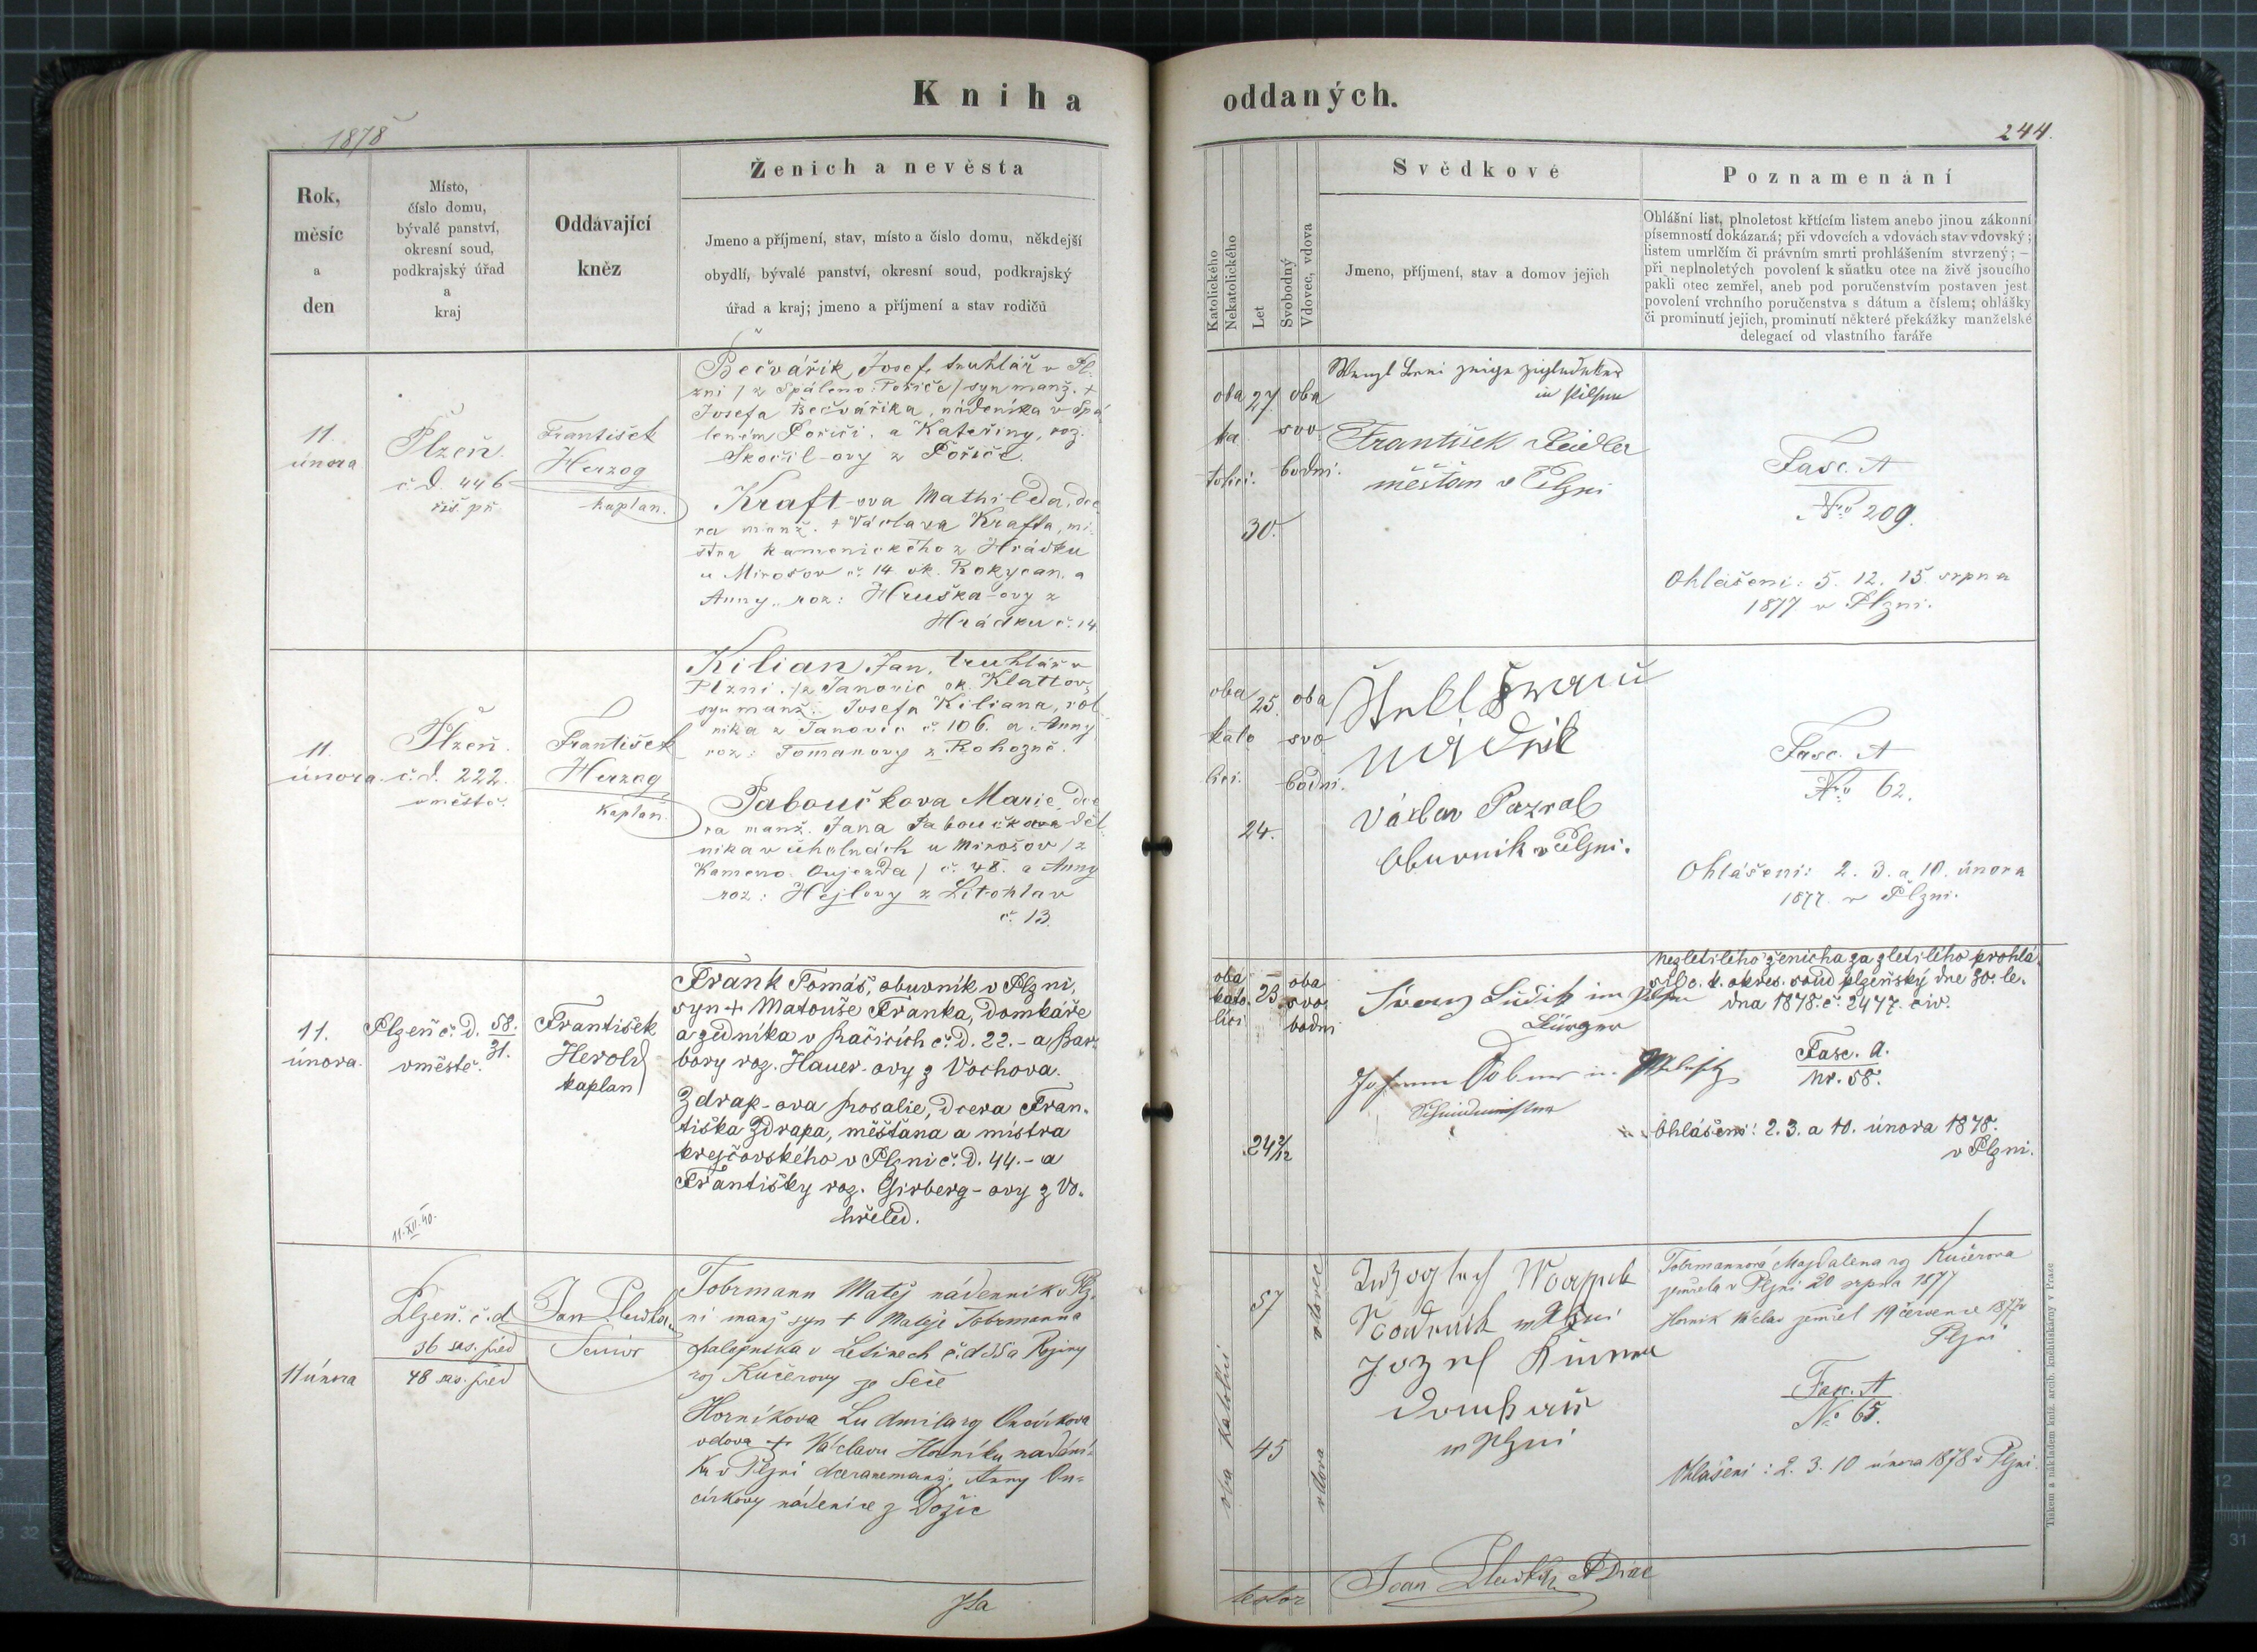 Kniha oddaných.
1878
244.
Rok,
měsíc
a
den
Místo,
číslo domu,
bývalé panství,
okresní soud,
podkrajský úřad
a
kraj
Oddávající
kněz
Ženich a nevěsta
Jmeno a příjmení, stav, místo a číslo domu, někdejší
obydlí, bývalé panství, okresní soud, podkrajský
úřad a kraj; jmeno a příjmení a stav rodičů
Katolického
Nekatolického
Let
Svobodný
Vdovec, vdova
Svědkové
Jmeno, příjmení, stav a domov jejich
Poznamenání
Ohlášní list, plnoletost křtícím listem anebo jinou zákonní
písemností dokázaná; při vdovcích a vdovách stav vdovský;
listem umrlčím či právním smrti prohlášením stvrzený; —
při neplnoletých povolení k sňatku otce na živě jsoucího
pakli otec zemřel, aneb pod poručenstvím postaven jest
povolení vrchního poručenstva s dátum a číslem; ohlášky
či prominutí jejich, prominutí některé překážky manželské
delegací od vlastního faráře
11.
února
Plzeň.
č. d. 446
říš. př.
František
Herzog
kaplan.
Bečvářík Josef, truhlář v Pl-
zni / z Spáleno-Poříče / syn manž. +
Josefa Bečváříka, nádeníka v Spá
leném Poříčí, a Kateřiny, roz.
Skočil-ovy z Poříčí.
Kraft-ova Mathilda, dce
ra manž. + Václava Krafta, mi-
stra kamenického z Hrádku
u Mirošov č. 14 ok. Rokycan. a
Anny, roz: Hruška-ovy z
Hrádku č. 14
oba
ka
tolici.
27.
30.
oba
svo
bodni.
in Pilsen
František
měšťan v Plzni
Fasc. A
Nro 209.
Ohlášení: 5. 12. 15. srpna
1877 v Plzni.
11.
února.
Plzeň.
č. d. 222.
v městě.
František
Herzog
kaplan.
Kilian Jan, truhlář v
Plzni, /z Janovic ok. Klattov,
syn manž. Josefa Kiliana, rol
nika z Janovic č. 106. a Anny
roz: Tomanovy z Rohozně.
Paboučkova Marie, dce
ra manž. Jana Paboučka děl
nika v úhelnách u Mirošov /z
Kameno. Oujezda / č. 48. a Anny
roz: Hejlovy z Litohlav
č. 13.
oba
kato
lici.
25.
24.
oba
svo
bodni.
Václav Pazral
Obuvník v Plzni.
Fasc. A
Nro 62.
Ohlášení: 2. 3. a 10. února
1877. v Plzni.
11.
února.
Plzeň č. d. 58.
31.
v městě.
František
Herold
kaplan
Frank Tomáš, obuvník v Plzni,
syn + Matouše Franka, domkáře
a zedníka v Račicích č. d. 22. - a Bar-
bory roz. Hauer-ovy z Vochova.
Zdrap-ova Rosalie, dcera Fran-
tiška Zdrapa, měšťana a mistra
krejčovského v Plzni č. d. 44. - a
Františky roz. Girberg-ovy z Vo-
hřeled.
11.XII.40.
oba
kato-
lici
23
24 2/12
oba
svo-
bodni
Franz in Pilsen
Bürger
Johann
Schneidermeister
Nezletilého ženicha za zletilého prohlá-
silo c. k. okres. soud plzeňský dne 30. le-
dna 1878. č. 2477. civ.
Fasc. A.
Nr. 58.
Ohlášení: 2. 3. a 10. února 1878.
v Plzni.
11 února
Plzeň. č. d
36 sas. před
48 sas. před
Jan
Senior
Tobrmann Matěj nádenník v Plz-
ni manž syn + Matěje Tobrmanna
v Letinech č. d 35 a Rejiny
roz Kučerovy ze Seče
Horníkova Ludmila roz
vdova + Václavu Horníku nadení-
ku v Plzni dcera nemanž. Anny On-
církovy nádenice z Dožic
oba katolici
57
45
vdovec
vdova
v Plzni
Josef
v Plzni
Tobrmannová Majdalena roz Kučerova
zemřela v Plzni 20 srpna 1877
Horník Václav zemřel 19 července 1877 v
Plzni
Fasc. A
No 65.
Ohlášení: 2. 3. 10 února 1878 v Plzni.
testor
Tiskem a nákladem kníž. arcib. knihtiskárny v Praze